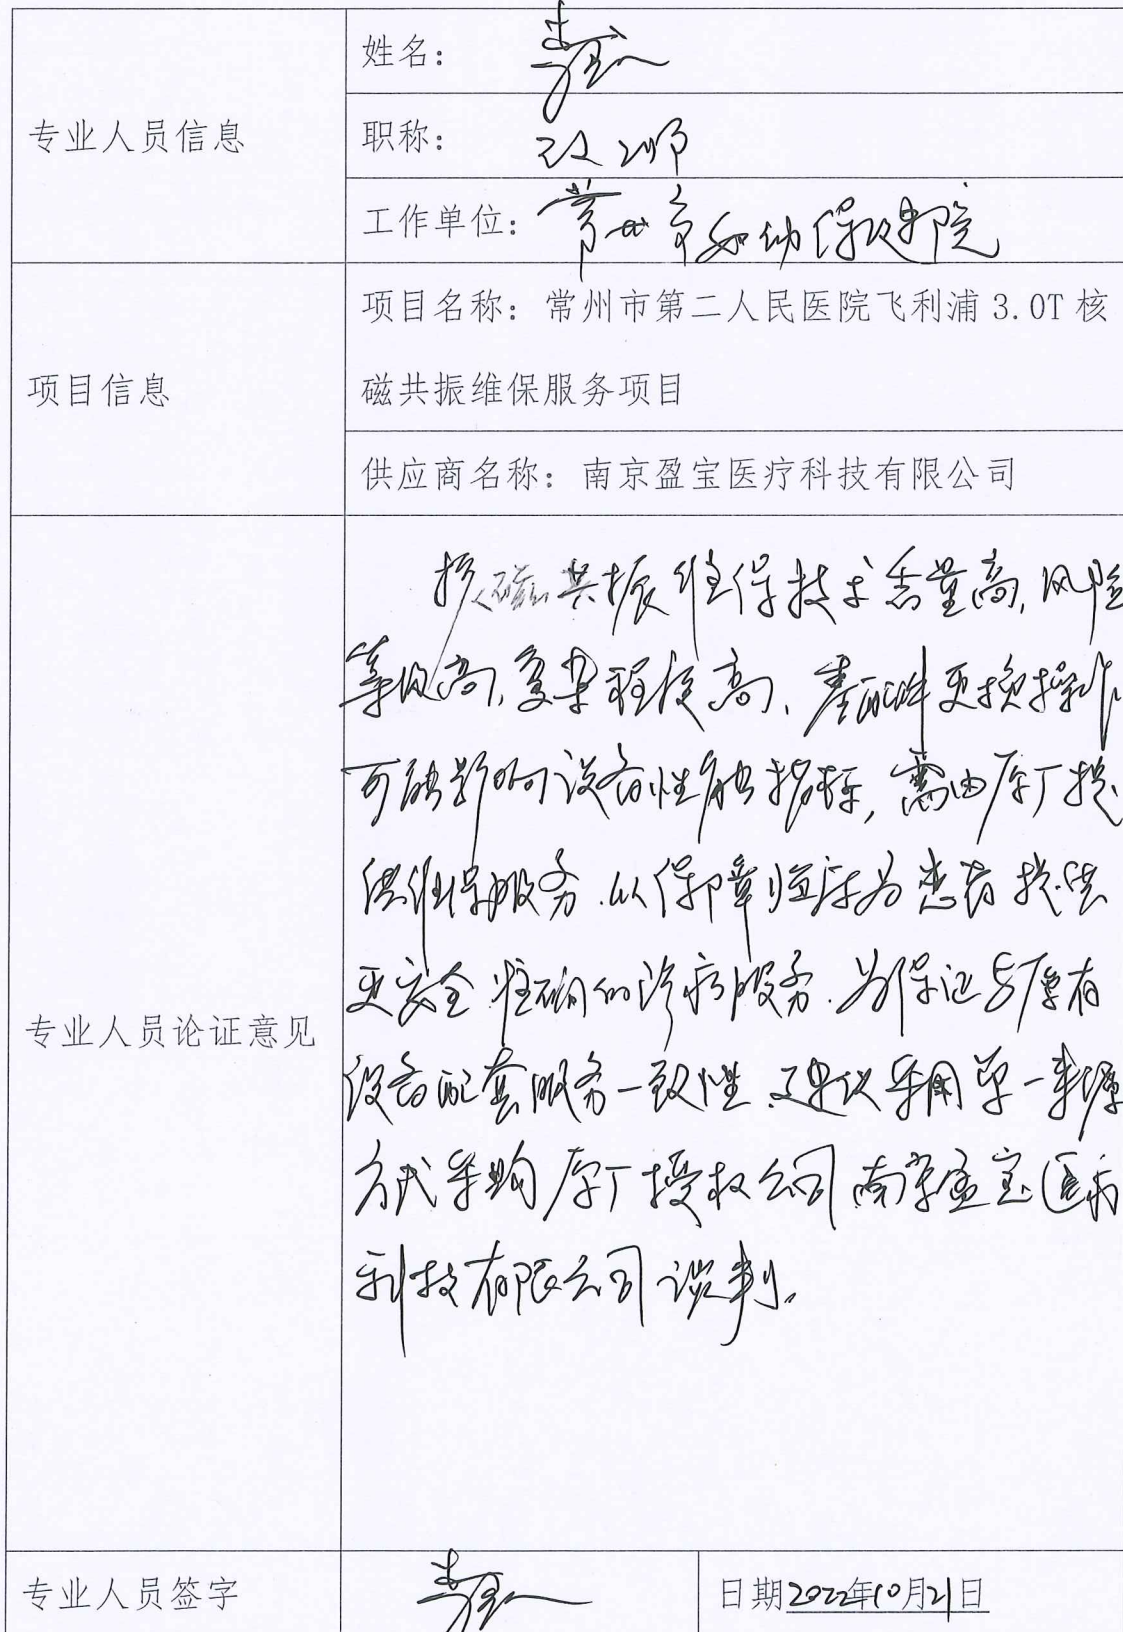 专业人员信息
姓名：
职称：
工作单位：常州市妇幼保健院
项目信息
项目名称：常州市第二人民医院飞利浦 3.0T 核
磁共振维保服务项目
供应商名称：南京盈宝医疗科技有限公司
专业人员论证意见
核磁共振维保技术含量高，风险
等级高，复杂程度高、零配件更换操作
可能影响设备性能指标，需由原厂提
供维保服务．以保障临床为患者提供
更安全准确的诊疗服务．为保证与原有
设备配套服务一致性．建议采用单一来源
方式采购原厂授权公司南京盈宝医疗
科技有限公司谈判。
专业人员签字
日期2022年10月21日